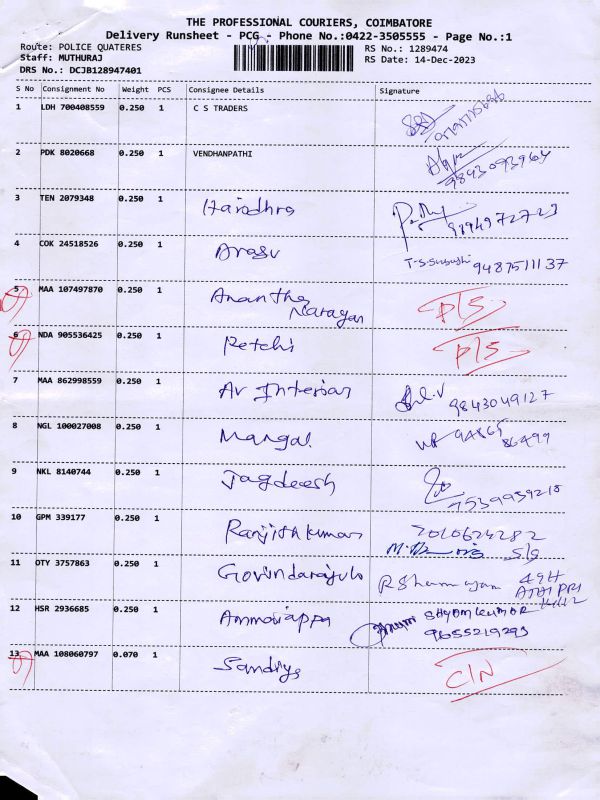 THE PROFESSIONAL COURIERS, COIMBATORE
Delivery Runsheet - PCG - Phone No.:0422-3505555 - Page No.:1
Route: POLICE QUATERES
RS No.: 1289474
Staff: MUTHURAJ
RS Date: 14-Dec-2023
DRS No.: DCJB128947401
S No Consignment No Weight PCS Consignee Details Signature
1 LDH 700408559 0.250 1 C S TRADERS
2 PDK 8020668 0.250 1 VENDHANPATHI
9843093964
3 TEN 2079348 0.250 1 Haridhra
9894972723
4 COK 24518526 0.250 1 Arasu
9487511137
5 MAA 107497870 0.250 1 Anantha Narayan P/S
6 NDA 905536425 0.250 1 Petchi P/S
7 MAA 862998559 0.250 1 Av Interior
9843049127
8 NGL 100027008 0.250 1 Mangal
94865
86499
9 NKL 8140744 0.250 1 Jagdeesh
7539939218
10 GPM 339177 0.250 1 Ranjithkumar
7010624282
S/S
11 OTY 3757863 0.250 1 Govindarajulu
12 HSR 2936685 0.250 1 Ammaiappa SHYAMKUMAR
9655219293
13 MAA 108060797 0.070 1 Sandhya C/N